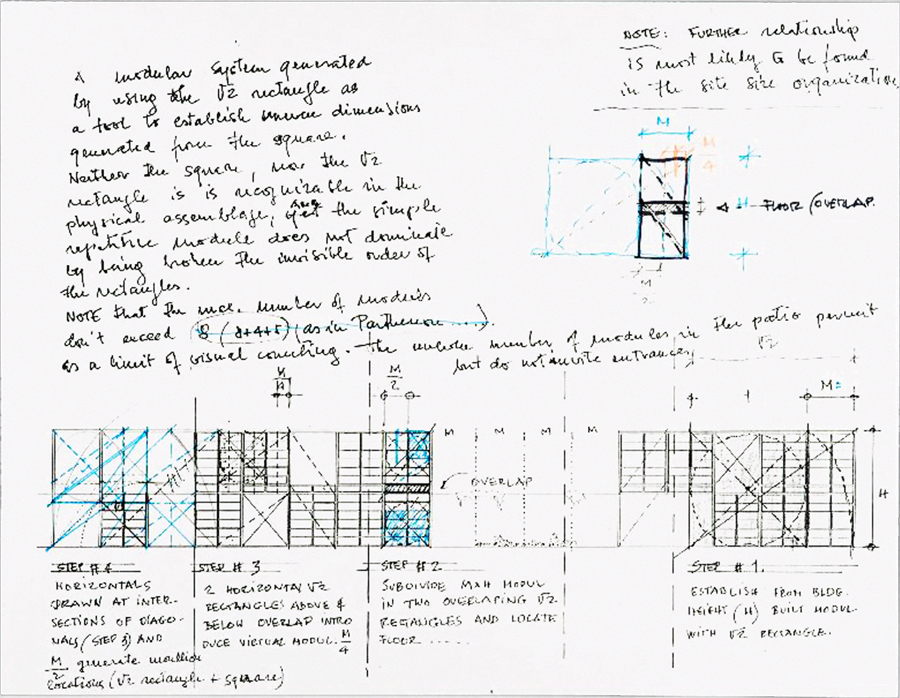 A modular system generated
by using the √2 rectangle as
a tool to establish uneven dimensions
generated from the square.
Neither the square, nor the √2
rectangle is is recognizable in the
physical assemblage, yet the simple
repetitive module does not dominate
by being broken the invisible order of
the rectangles.
NOTE that the max. number of modules
don't exceed 8 (8+4+5) (as in Parthenon ....).
as a limit of visual counting. The number of modules in the patio permit
but do not invite entrances
NOTE: FURTHER relationship
is most likely to be found
in the site size organization
M
M/4
H
FLOOR/OVERLAP.
M/2
√2
M
M/2
M=
M M M M
OVERLAP
H
STEP #4
HORIZONTALS
DRAWN AT INTER-
SECTIONS OF DIAGO-
NALS (STEP 3) AND
M/2 generate mullion
locations (√2 rectangle + square)
STEP # 3
2 HORIZONTAL √2
RECTANGLES ABOVE &
BELOW OVERLAP INTRO
DUCE VIRTUAL MODUL. M/4
STEP #2
SUBDIVIDE MXH MODUL
IN TWO OVERLAPING √2
RECTANGLES AND LOCATE
FLOOR .....
STEP # 1.
ESTABLISH FROM BLDG.
HEIGHT (H) BUILT MODUL.
WITH √2 RECTANGLE.